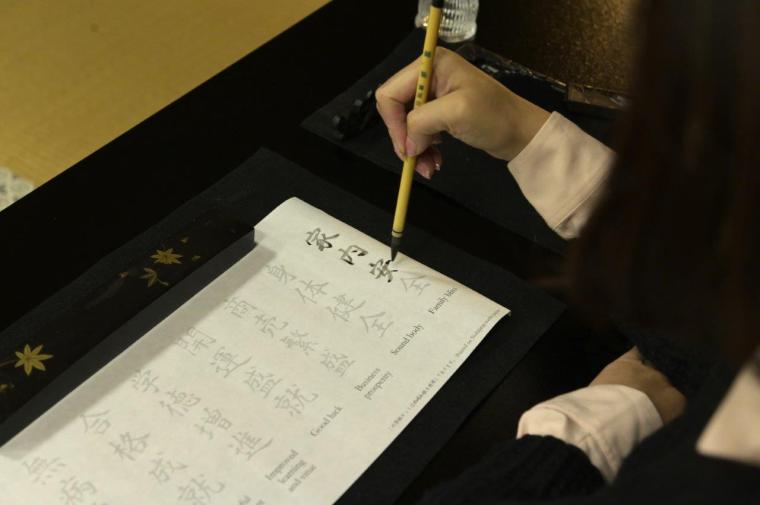 家内安全
Family bliss
身体健全
Sound body
商売繁盛
Business
prosperity
開運盛就
Good luck
学徳増進
Improved
learning
and virtue
合格成就
無病